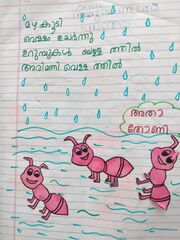 മഴ കൂടി
വെള്ളം ഉയർന്നു
ഉറുമ്പുകൾ വെള്ള ത്തിൽ
അരിമണി വെള്ള ത്തിൽ
അതാ
തോണി